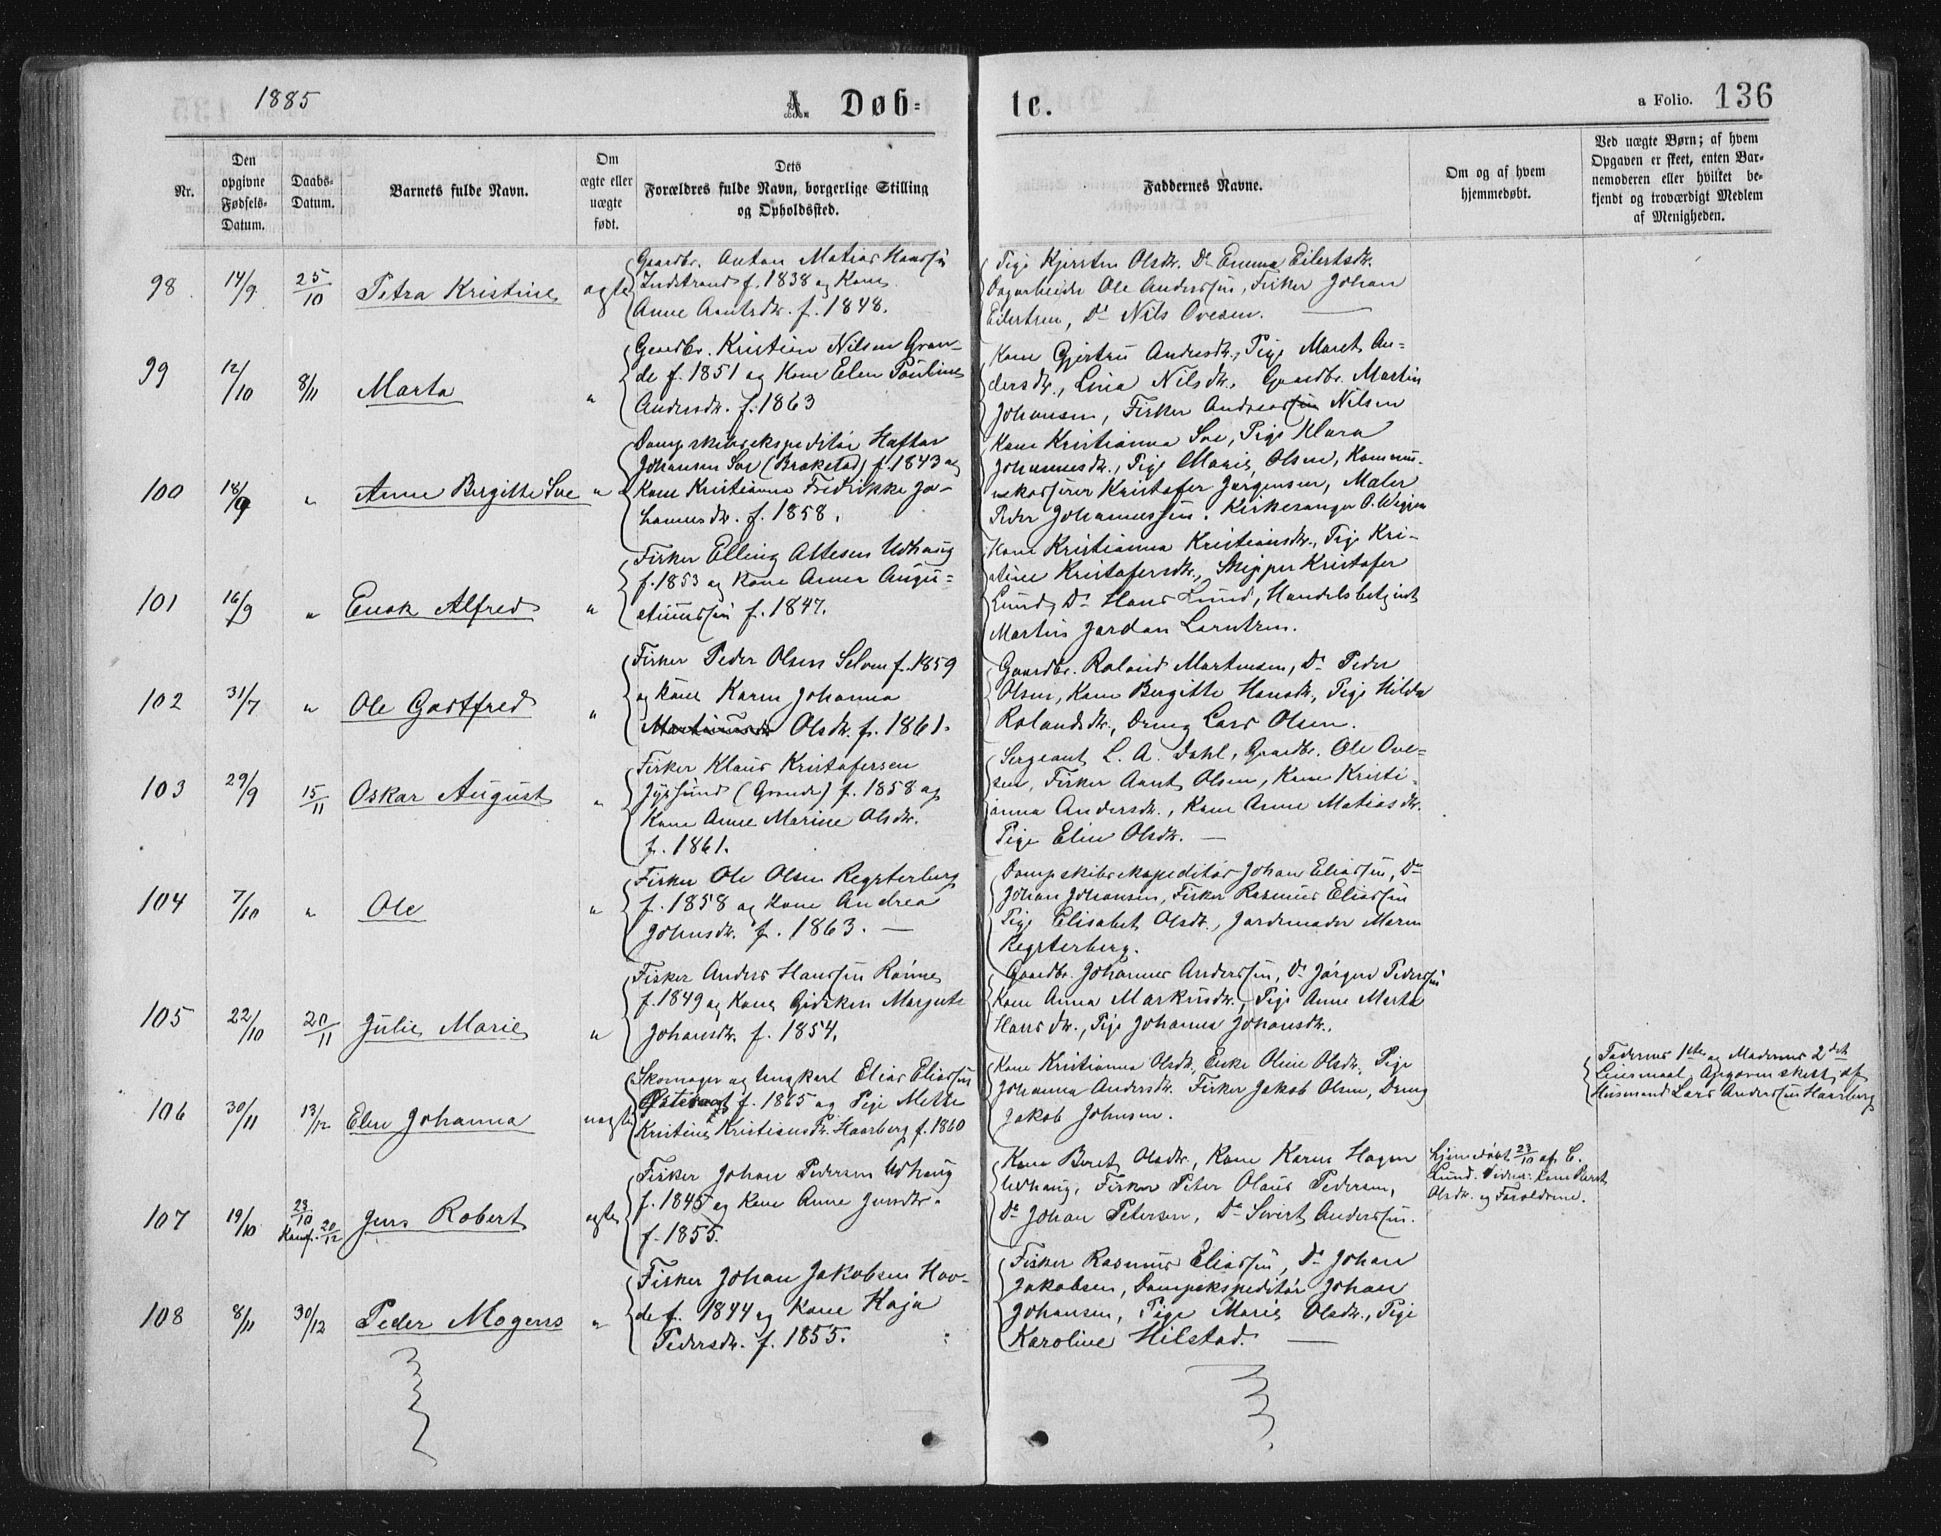 1885
A. Døb=
te.
a Folio. 136
Nr.
Den
opgivne
Fødsels-
Datum.
Daabs-
Datum.
Barnets fulde Navn.
Om
ægte eller
uægte
født.
Dets
Forældres fulde Navn, borgerlige Stilling
og Opholdssted.
Faddernes Navne.
Om og af hvem
hjemmedøbt.
Ved uægte Børn; af hvem
Opgaven er skeet, enten Bar-
nemoderen eller hvilket be-
kjendt og troværdigt Medlem
af Menigheden.
98 14/9 25/10 Petra Kristine ægte
Gaardbr. Anton Matias Hanssøn
Indstrand f. 1838 og Kone
Anne Arntsdtr. f. 1848.
Pige Kjersten Olsdtr. Do Emma Eilertsdtr.
Dagarbeider Ole Anderssøn, Fisker Johan
Eilertsen, Do Nils Ovesen.
99 12/10 8/11 Marta "
Gaardbr. Kristian Nilsen Gran-
de f. 1851 og Kone Elen Pauline
Andersdtr. f. 1863
Kone Gjertru Andersdtr., Pige Maret An-
dersdtr., Lina Nilsdtr. Gaardbr. Martin
Johansen, Fisker Andreas Nilsen
100 18/9 " Anne Bergitte Soe "
Dampskibsekspeditør Haftor
Johansen Soe (Brakstad) f. 1843 og
Kone Kristianna Fredrikke Jo-
hannesdtr. f. 1858.
Kone Kristianna Soe, Pige Klara
Johannesdtr., Pige Marie Olsen, Kommu-
nekasserer Kristofer Jørgensen, Maler
Peder Johannessøn. Kirkesanger O. Wiggen
101 16/9 " Enok Alfred "
Fisker Elling Ottesen Udhaug
f. 1853 og Kone Anna Augu=
stinussøn f. 1847.
Kone Kristianna Kristiansdtr., Pige Kri-
stine Kristofersdtr., Skipper Kristofer
Lund, Do Hans Lund, Handelsbetjent
Martin Jordan Lorntzen.
102 31/7 " Ole Gastfred "
Fisker Peder Olsen Selven f. 1859
og Kone Karen Johanna
Martinusdtr Olsdtr. f. 1861.
Gaardbr. Roland Martensen, Do Peder
Olsen, Kone Bergitte Hansdtr, Pige Hilda
Rolandsdtr., Dreng Lars Olsen.
103 29/9 15/11 Oskar August "
Fisker Klaus Kristofersen
(Grande) f. 1858 og
Kone Anne Marine Olsdtr.
f. 1861.
Sergeant L. A. Dahl, Gaardbr. Ole Ove-
sen, Fisker Arnt Olsen, Kone Kristi-
anna Andersdtr., Kone Anne Matiasdtr.
Pige Elen Olsdtr. —
104 7/10 " Ole "
Fisker Ole Olsen Regsterberg
f. 1858 og Kone Andrea
Johnsdtr. f. 1863. —
Dampskibsekspeditør Johan Eliassøn, Do
Johan Johansen, Fisker Rasmus Eliassøn
Pige Elisabet Olsdtr., Jordemoder Maren
Regsterberg.
105 22/10 20/11 Julie Marie "
Fisker Anders Hanssøn Rønne
f. 1849 og Kone Gidsken Margrete
Johansdtr. f. 1854.
Gaardbr. Johannes Anderssøn, Do Jørgen Pederssøn
Kone Anna Markusdtr., Pige Anne Marta
Hansdtr., Pige Johanna Johansdtr.
106 30/11 13/12 Elen Johanna uægte
Skomager og Ungkarl Elias Eliassøn
f. 1865 og Pige Mette
Kristine Kristiansdtr. Haarberg f. 1860
Kone Kristianna Olsdtr, Enke Oline Olsdtr, Pige
Johanna Andersdtr. Fisker Jakob Olsen, Dreng
Jakob Johnsen.
Faderens 1ste og Moderens 2det
Leiermaal, Opgaven skeet af
Husmand Lars Anderssøn Haarberg
107 19/10 23/10 Konf. 20/12 Jens Robert ægte
Fisker Johan Pedersen Udhaug
f. 1845 og Kone Anne Jensdtr.
f. 1855.
Kone Beret Olsdtr, Kone Karen Hagen
Udhaug, Fisker Peter Olaus Pedersen,
Do Johan Petersen, Do Sivert Anderssøn.
Hjemmedøbt 23/10 af C.
Lund. Vidner: Kone Beret
Olsdtr. og Forældrene.
108 8/11 30/12 Peder Mogens "
Fisker Johan Jakobsen Hov-
de f. 1844 og Kone Kaja
Pedersdtr. f. 1855.
Fisker Rasmus Eliassøn, Do Johan
Jakobsen, Dampekspeditør Johan
Johansen, Pige Marie Olsdtr., Pige
Karoline Hilstad. —